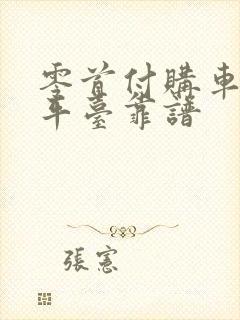 零首付購車
平臺靠譜
張憲